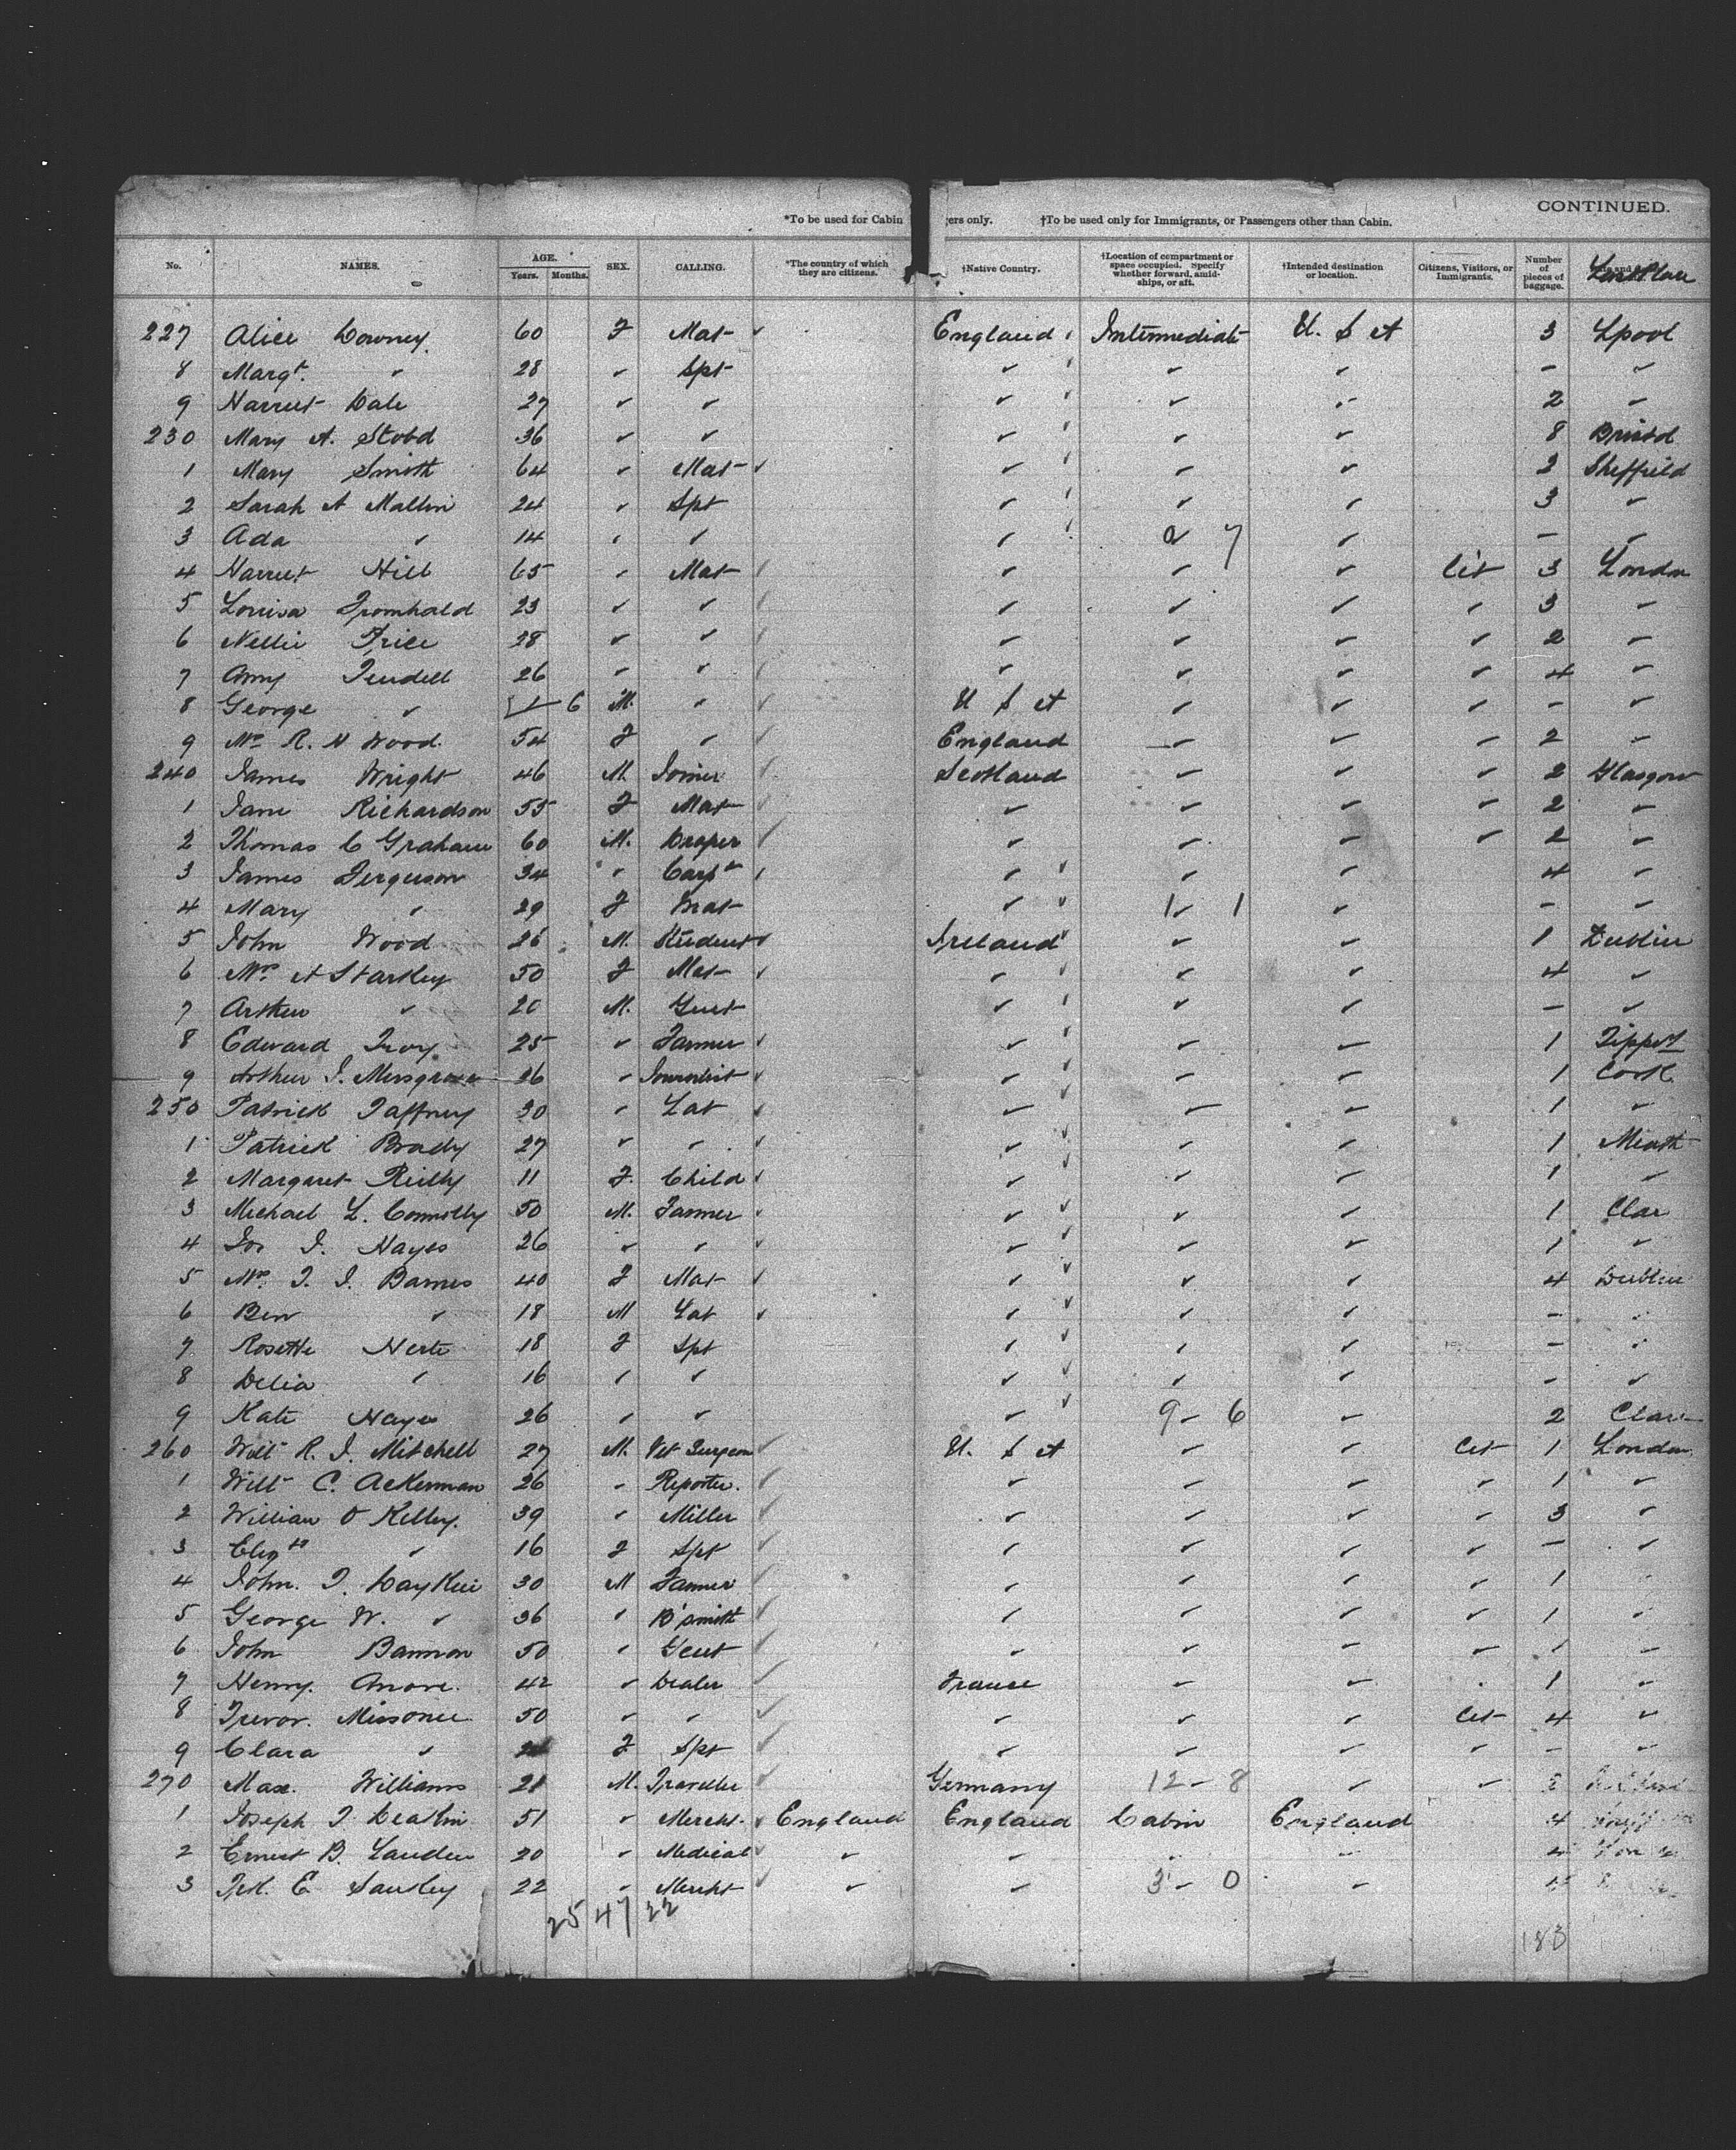 CONTINUED.
*To be used for Cabin gers only. †To be used only for Immigrants, or Passengers other than Cabin.
No. NAMES. AGE. Years. Months. SEX. CALLING. *The country of which they are citizens. †Native Country. †Location of compartment or space occupied. Specify whether forward, amidships, or aft. †Intended destination or location. Citizens, Visitors, or Immigrants. Number of pieces of baggage. Last Place
227 Alice Downey 60 F Mat ✓ England Intermediate U. S. A 3 Lpool
8 Margt. " 28 " Spt " " " - "
9 Harriet Dale 27 " " " " " 2 "
230 Mary A. Stobd 36 " " " " " 8 Bristol
1 Mary Smith 64 " Mat ✓ " " " 2 Sheffield
2 Sarah A Mallin 24 " Spt " " " 3 "
3 Ada " 14 " " " 2 7 " - "
4 Harriet Hill 65 " Mat " " " Cit 3 London
5 Louisa 23 " " " " " " 3 "
6 Nellie Price 28 " " " " " " 2 "
7 Amy Tendell 26 " " " " " " 4 "
8 George " 6 M. " U S A " " " - "
9 Mrs R. H Wood. 54 F " England " " " 2 "
240 James Wright 46 M. Joiner Scotland " " " 2 Glasgow
1 Jane Richardson 55 F Mat " " " " 2 "
2 Thomas C Graham 60 M. Draper " " " " 2 "
3 James Ferguson 34 " Carpr " " " 4 "
4 Mary " 29 F Mat " 1 - 1 " - "
5 John Wood 26 M. Student ✓ Ireland " " 1 Dublin
6 Mrs A Starkey 50 F Mat ✓ " " " 4 "
7 Arthur " 20 M. Gent " " " - "
8 Edward Troy 25 " Farmer ✓ " " " 1 Tippery
9 Arthur J. Musgrave 26 " Journalist ✓ " " " 1 Cork
250 Patrick Gaffney 30 " Lab ✓ " " " 1 "
1 Patrick Brady 27 " " ✓ " " " 1 Meath
2 Margaret Reilly 11 F. Child ✓ " " " 1 "
3 Michael L. Connolly 50 M. Farmer ✓ " " " 1 Clar
4 Jos J. Hayes 26 " " ✓ " " " 1 "
5 Mrs. T. J. Barnes 40 F Mat ✓ " " " 4 Dublin
6 Ben " 18 M Lab ✓ " " " - "
7 Rosette 18 F Spt " " " - "
8 Delia " 16 " " " " " - "
9 Kate Hayes 26 " " " 9 - 6 " 2 Clare
260 Will R. J. Mitchell 27 M. Vet Surgeon U. S A " " Cit 1 London
1 Will C. Ackerman 26 " Reporter. " " " " 1 "
2 William O Kelley. 39 " Miller " " " " 3 "
3 Elizth " 16 F Spt " " " " - "
4 John. T. 30 M Farmer " " " " 1 "
5 George W. " 36 " B'smith " " " " 1 "
6 John Bannon 50 " Gent " " " " 1 "
7 Henry. 42 " Dealer France " " 1 "
8 Trevor. 50 " " " " " Cit 4 "
9 Clara " F Spt " " " " - "
270 Max. Williams 21 M. Traveller Germany 12 - 8 " "
1 Joseph T. Deakin 51 " Mercht. ✓ England England Cabin England 4
2 Ernest B. 20 " Medical ✓ " " " "
3 E 22 " Mercht " " 3 - 0 "
25 47 22
183